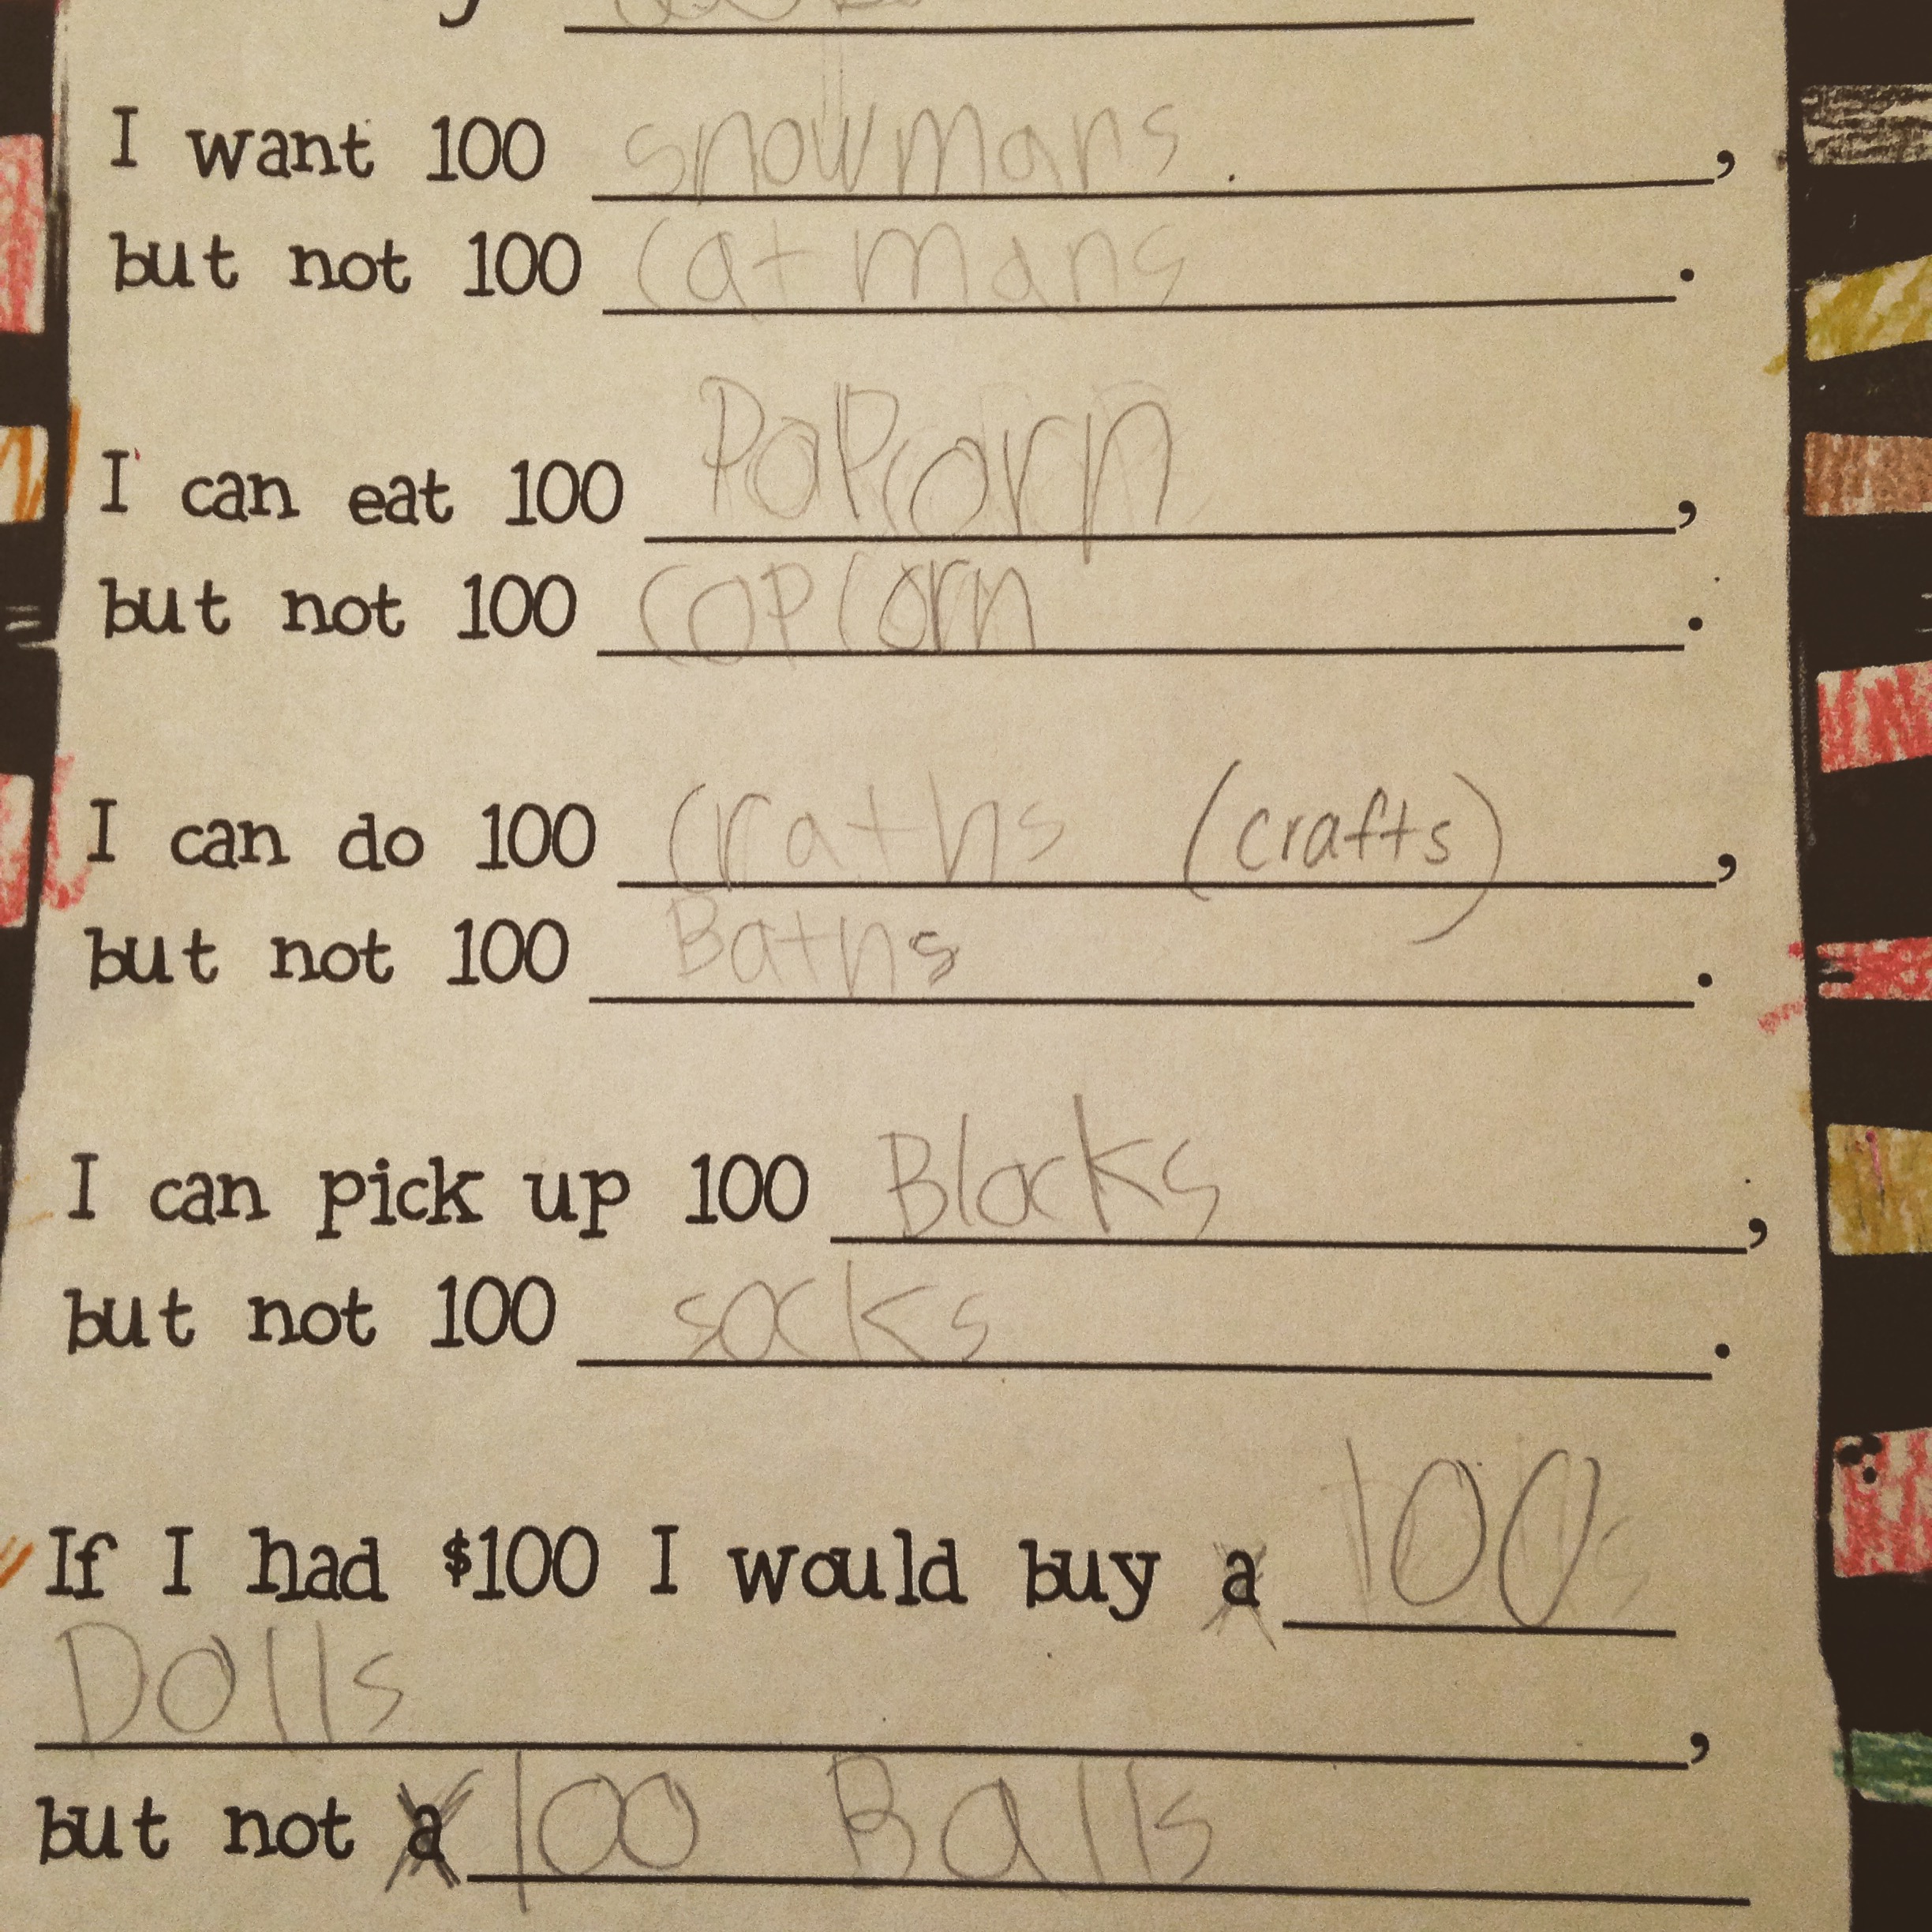 I want 100 snowmans,
but not 100 catmans.
I can eat 100 PoPcorn,
but not 100 copcorn.
I can do 100 craths (crafts),
but not 100 Baths.
I can pick up 100 Blocks,
but not 100 socks.
If I had $100 I would buy a 100
Dolls,
but not a 100 Balls